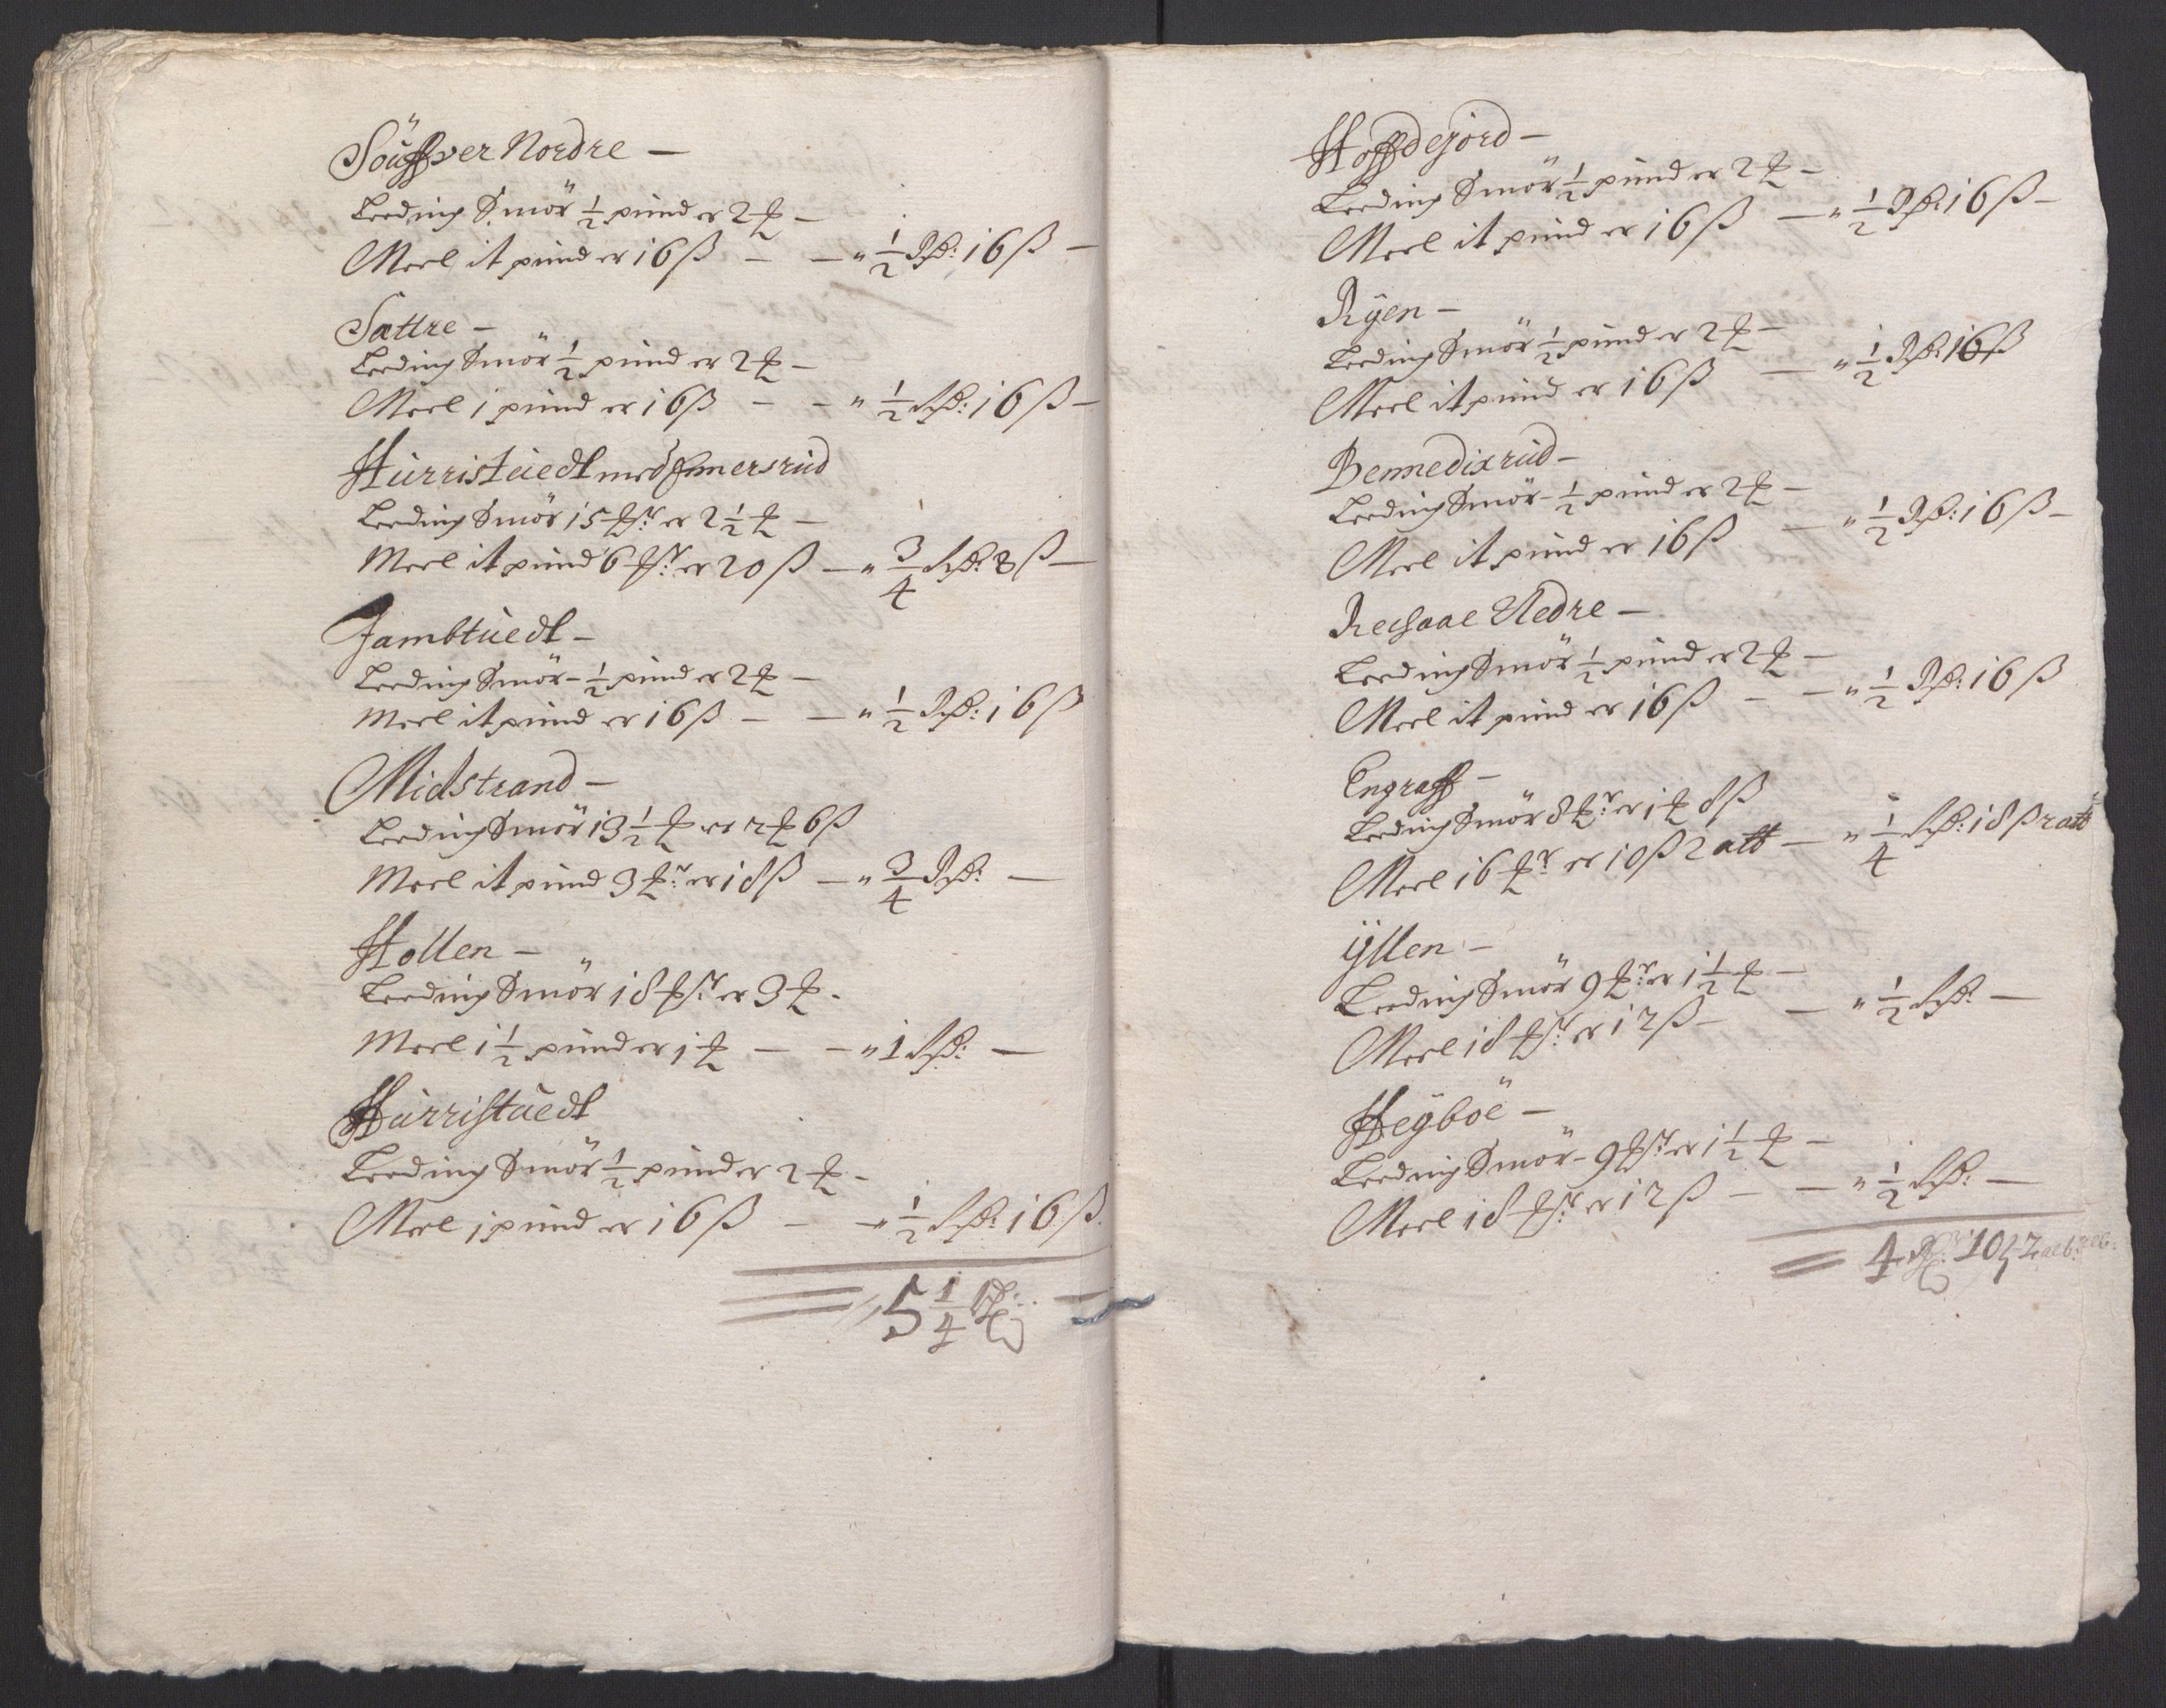 Söuffver Nordre –
Leeding Smör ½ pund er 2 ℔ –
Meel it pund er 16 ß – – " ½ Rd: 16 ß –
Sattre –
Leeding Smör ½ pund er 2 ℔ –
Meel 1 pund er 16 ß – – " ½ Rd: 16 ß –
Hurristuedt med Emersrud
Leeding Smör 15 ℔r er 2½ ℔ –
Meel it pund 6 ℔r er 20 ß – " ¾ Rd: 8 ß –
Jambtuedt –
Leeding Smör – ½ pund er 2 ℔ –
Meel it pund er 16 ß – – " ½ Rd: 16 ß
Midstrand –
Leeding Smör 13½ ℔ er 2 ℔ 6 ß
Meel it pund 3 ℔r er 18 ß – " ¾ Rd: –
Hollen –
Leeding Smör 18 ℔r er 3 ℔ –
Meel 1½ pund er 1 ℔ – – " 1 Rd: –
Hurristuedt
Leeding Smör ½ pund er 2 ℔ –
Meel j pund er 16 ß – – " ½ Rd: 16 ß
5¼ Rd: –
Hoffdejord –
Leeding Smör ½ pund er 2 ℔ –
Meel it pund er 16 ß – " ½ Rd: 16 ß –
Rÿen –
Leeding Smör ½ pund er 2 ℔ –
Meel it pund er 16 ß – " ½ Rd: 16 ß
Bennedixrud –
Leeding Smör – ½ pund er 2 ℔ –
Meel it pund er 16 ß – " ½ Rd: 16 ß –
Rechaae Nedre –
Leeding Smör ½ pund er 2 ℔ –
Meel it pund er 16 ß – – " ½ Rd: 16 ß
Engraff –
Leeding Smör 8 ℔r er 1 ℔ 8 ß
Meel 16 ℔r er 10 ß 2 alb – " ¼ Rd: 18 ß 2 alb
ÿllen –
Leeding Smör 9 ℔r er 1½ ℔ –
Meel 18 ℔r er 12 ß – – " ½ Rd: –
Heÿböe –
Leeding Smör – 9 ℔r er 1½ ℔ –
Meel 18 ℔r er 12 ß – – " ½ Rd: –
4 Rd: 10 ß 2 alb: